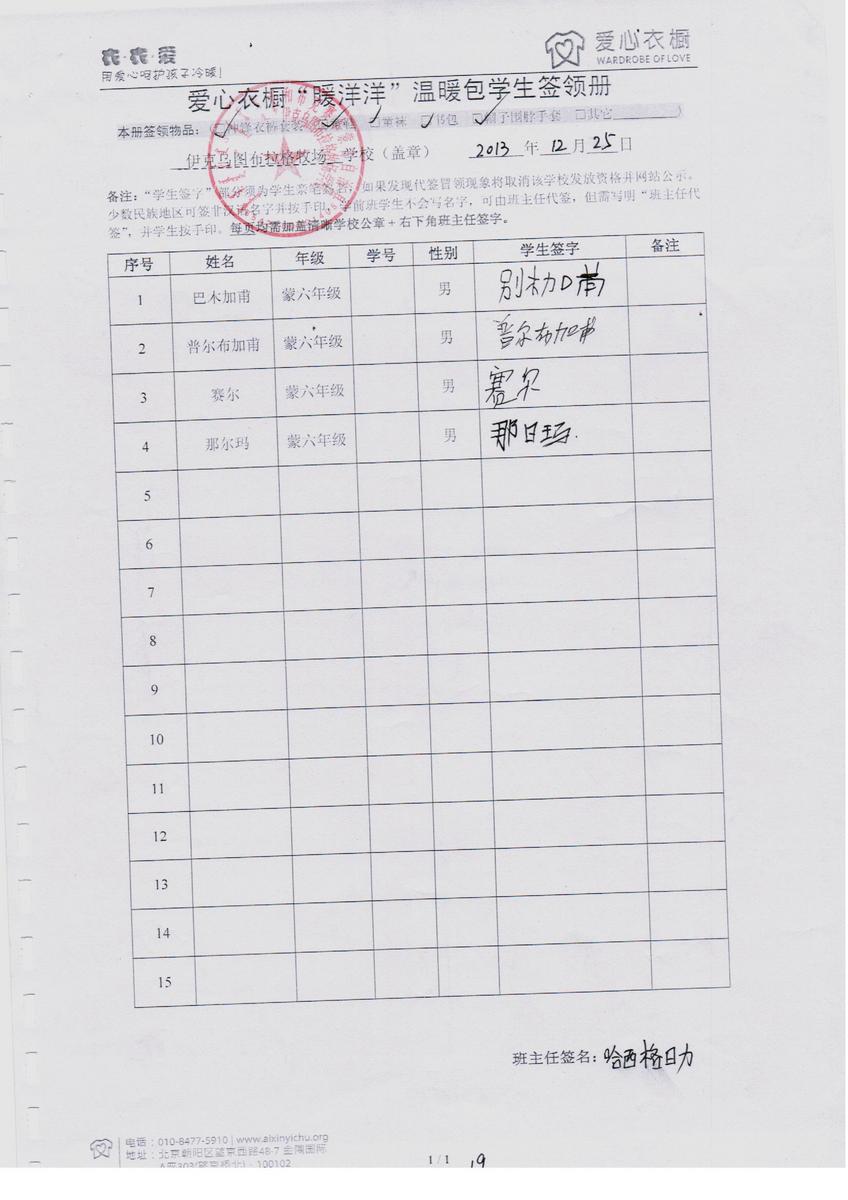 衣·衣·爱
用爱心呵护孩子冷暖!
爱心衣橱
WARDROBE OF LOVE
爱心衣橱“暖洋洋”温暖包学生签领册
本册签领物品: ☑冲锋衣裤套装 ☑童鞋 ☑童袜 ☑书包 ☑帽子围脖手套 □其它
伊克乌图布拉格牧场 学校(盖章) 2013 年 12 月 25 日
备注:“学生签字”部分须为学生亲笔签名,如果发现代签冒领现象将取消该学校发放资格并网站公示。
少数民族地区可签非汉语名字并按手印,学前班学生不会写名字,可由班主任代签,但需写明“班主任代
签”,并学生按手印。每页均需加盖清晰学校公章+右下角班主任签字。
序号 姓名 年级 学号 性别 学生签字 备注
1 巴木加甫 蒙六年级 男
2 普尔布加甫 蒙六年级 男 普尔布加甫
3 赛尔 蒙六年级 男 赛尔
4 那尔玛 蒙六年级 男 那日玛.
5
6
7
8
9
10
11
12
13
14
15
班主任签名: 哈西格日力
电话:010-8477-5910 | www.aixinyichu.org
地址:北京朝阳区望京西路48-7 金隅国际
A座303(望京桥北)·100102
1 / 1
19